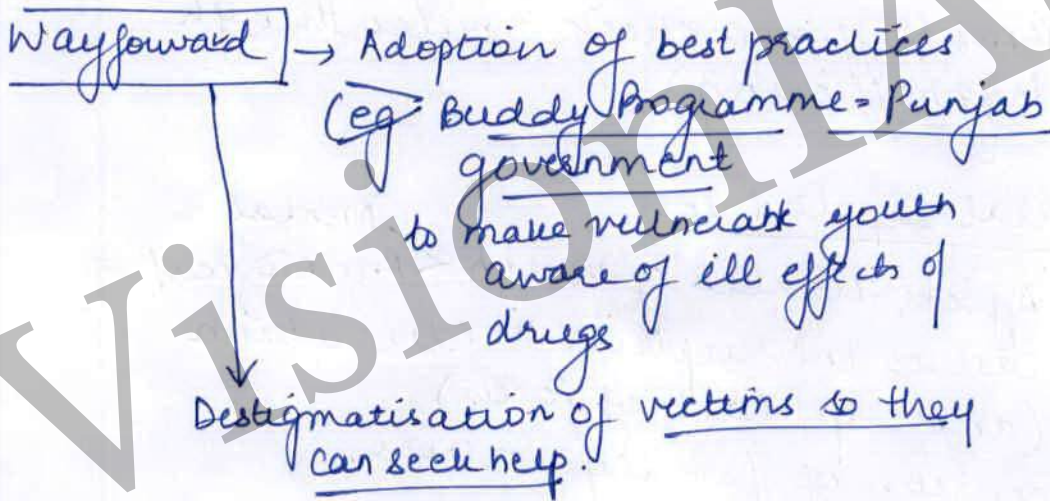 Wayforward → Adoption of best practices
(eg Buddy Programme = Punjab
government
to make vulnerable youth
aware of ill effects of
drugs
Destigmatisation of victims so they
can seek help.
VisionIA